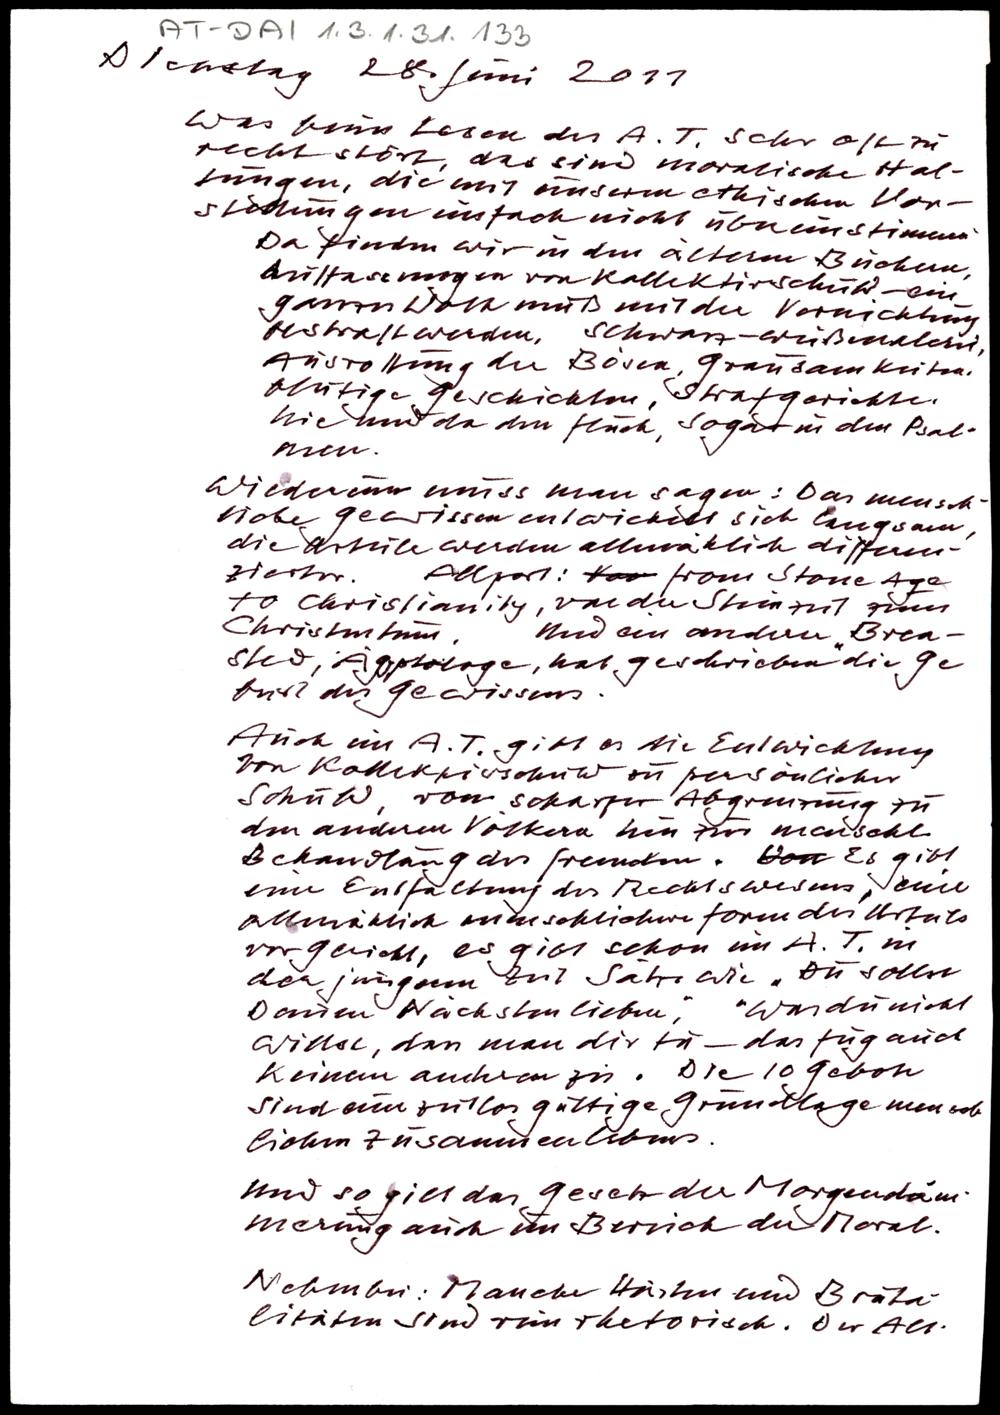 AT-DAI 1.3.1.31.133
Dienstag 28. Juni 2011
Was beim Lesen des A.T. sehr oft zu
recht stört, das sind moralische Hal-
tungen, die mit unseren ethischen Vor-
stellungen einfach nicht übereinstimmen
Da finden wir in den älteren Büchern,
Auffassungen von Kollektivschuld – ein
ganzes Volk muß mit der Vernichtung
bestraft werden, Schwarz-weißmalerei,
Ausrottung der Bösen, Grausamkeiten.
blutige Geschichten, Strafgerichte.
hie und da den Fluch, sogar in den Psal-
men.
Wiederum muss man sagen: Das mensch-
liche Gewissen entwickelt sich langsam,
die Urteile werden allmählich differen-
zierter. Allport: from Stone Age
to Christianity, von der Steinzeit zum
Christentum. Und ein anderer, Brea-
sted, Ägyptologe, hat geschrieben "die Ge
burt des Gewissens.
Auch im A.T. gibt es die Entwicklung
von Kollektivschuld zu persönlicher
Schuld, von scharfer Abgrenzung zu
den anderen Völkern hin zur menschl.
Behandlung des Fremden. Es gibt
eine Entfaltung des Rechtswesens, eine
allmählich menschlichere Form des Urteils
vor Gericht, es gibt schon im A.T. in
der jüngeren Zeit Sätze wie „Du sollst
Deinen Nächsten lieben", "Was du nicht
willst, das man dir tu – das füg auch
keinem anderen zu. Die 10 Gebote
sind eine zeitlos gültige Grundlage mensch
lichen Zusammenlebens.
Und so gilt das Gesetz der Morgendäm-
merung auch im Bereich der Moral.
Nebenbei: Manche Härten und Bruta-
litäten sind rein rhetorisch. Der Alt-